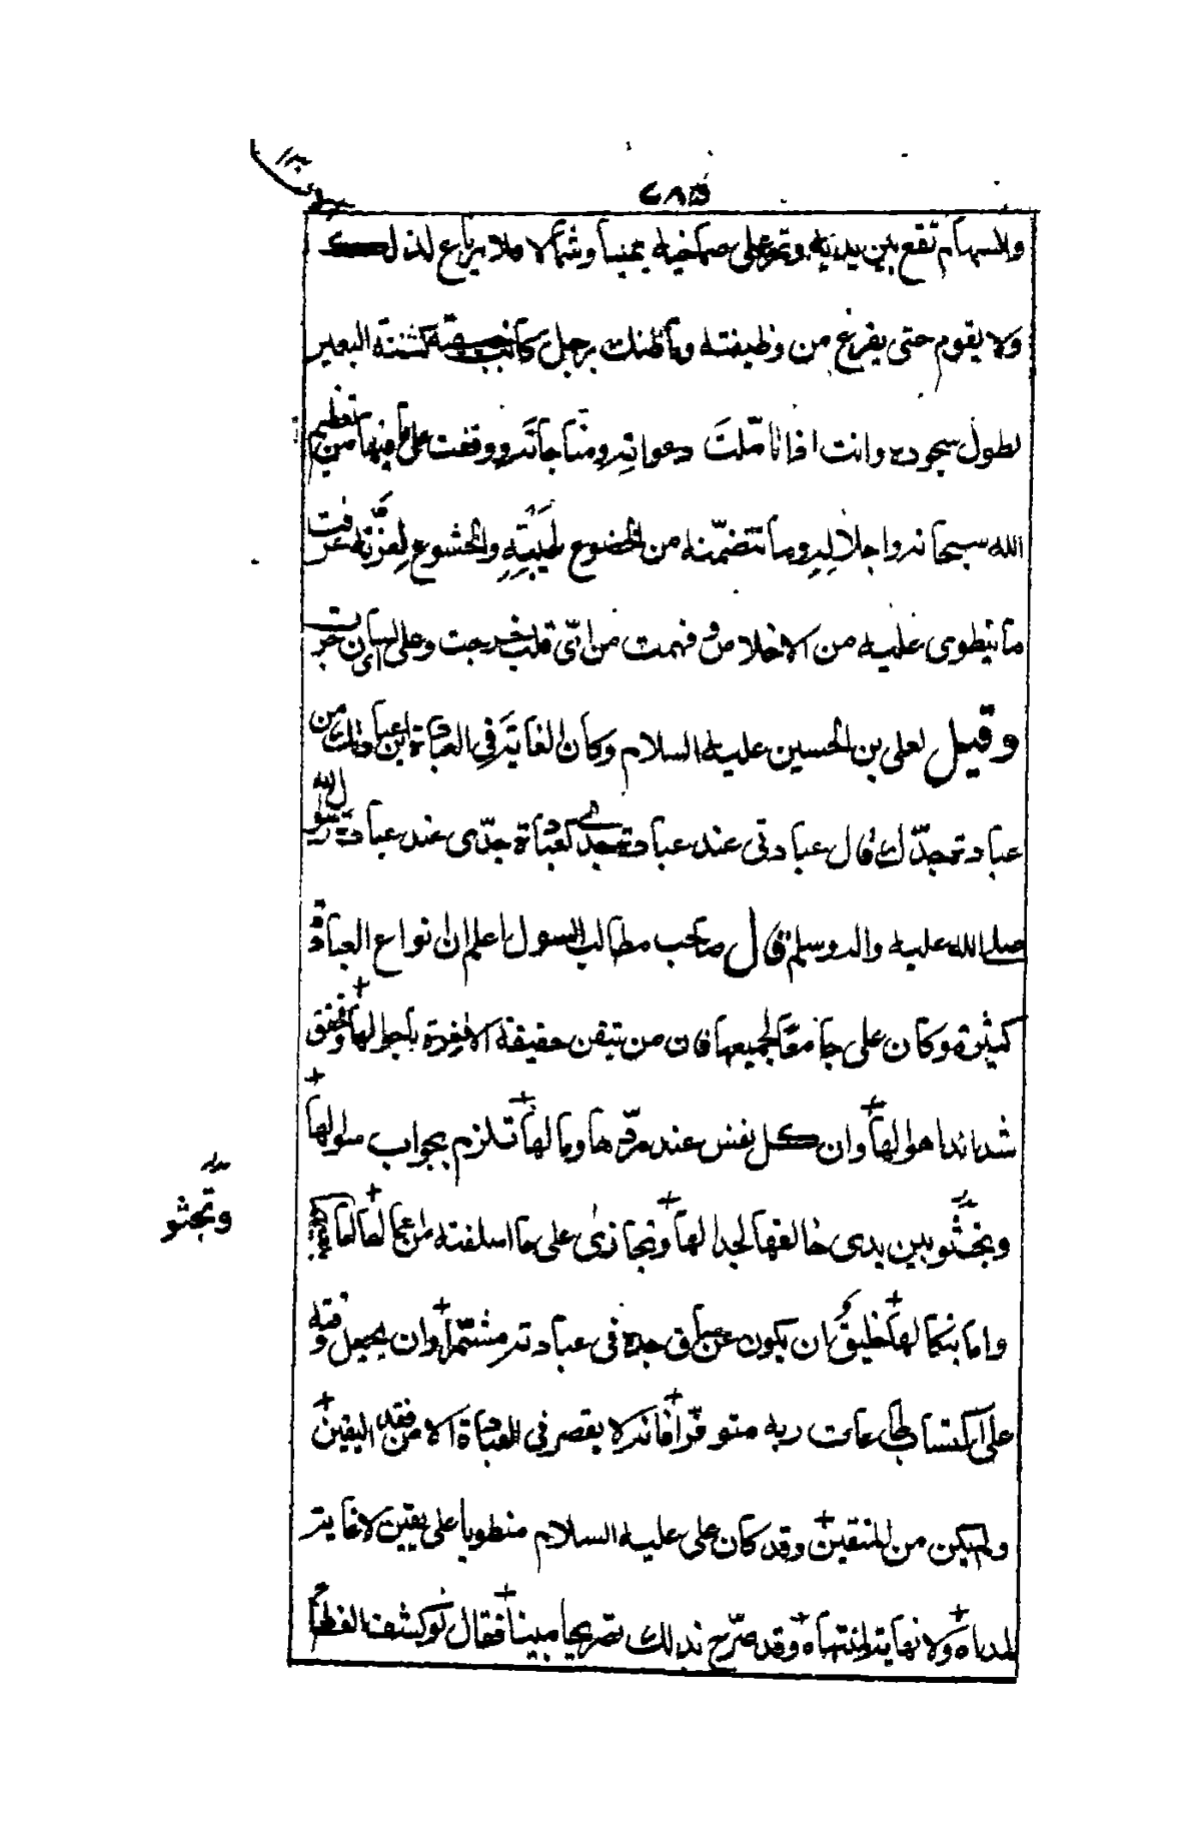 ٢٨٥
والسهام تقع بين يديه وتمر على صماخيه يمينا وشمالا فلا يرتاع لذلك
ولا يقوم حتى يفرغ من وظيفته وما ظنك برجل كانت جبهته كثفنة البعير
لطول سجوده وانت اذا تاملت دعواته ومناجاته ووقفت على ما فيها من تعظيم
الله سبحانه واجلاله وما تتضمنه من الخضوع لهيبته والخشوع لعزته عرفت
ما ينطوى عليه من الاخلاص وفهمت من اىّ قلب خرجت وعلى اى لسان جرت
وقيل لعلى بن الحسين عليه السلام وكان الغاية فى العبادة اين عبادتك من
عبادة جدّك قال عبادتى عند عبادة جدى كعبادة جدّى عند عبادة رسول الله
صلى الله عليه واله وسلم قال صاحب مطالب السول اعلم ان انواع العبادة
كثيرة وكان على جامعا لجميعها فان من تيقن حقيقة الاخرة باحوالها وتحقق
شدائد اهوالها وان كل نفس عند مردّها ومآلها تلزم بجواب سؤالها
وتجثو بين يدى خالقها لجدالها وتجازى على ما اسلفته من اعمالها اما
واما بنكالها خليق ان يكون عن ساق جده فى عبادته مشمّرا وان يجعل وقته
على اكتساب طاعات ربه متوفّرا فانه لا يقصر فى العبادة الا من فقد اليقين
ولم يكن من المتقين وقد كان على عليه السلام منطويا على يقين لا غاية
لمداه ولا نهاية لمنتهاه وقد صرّح بذلك تصريحا مبينا فقال لو كشف الغطاء
وتجثو